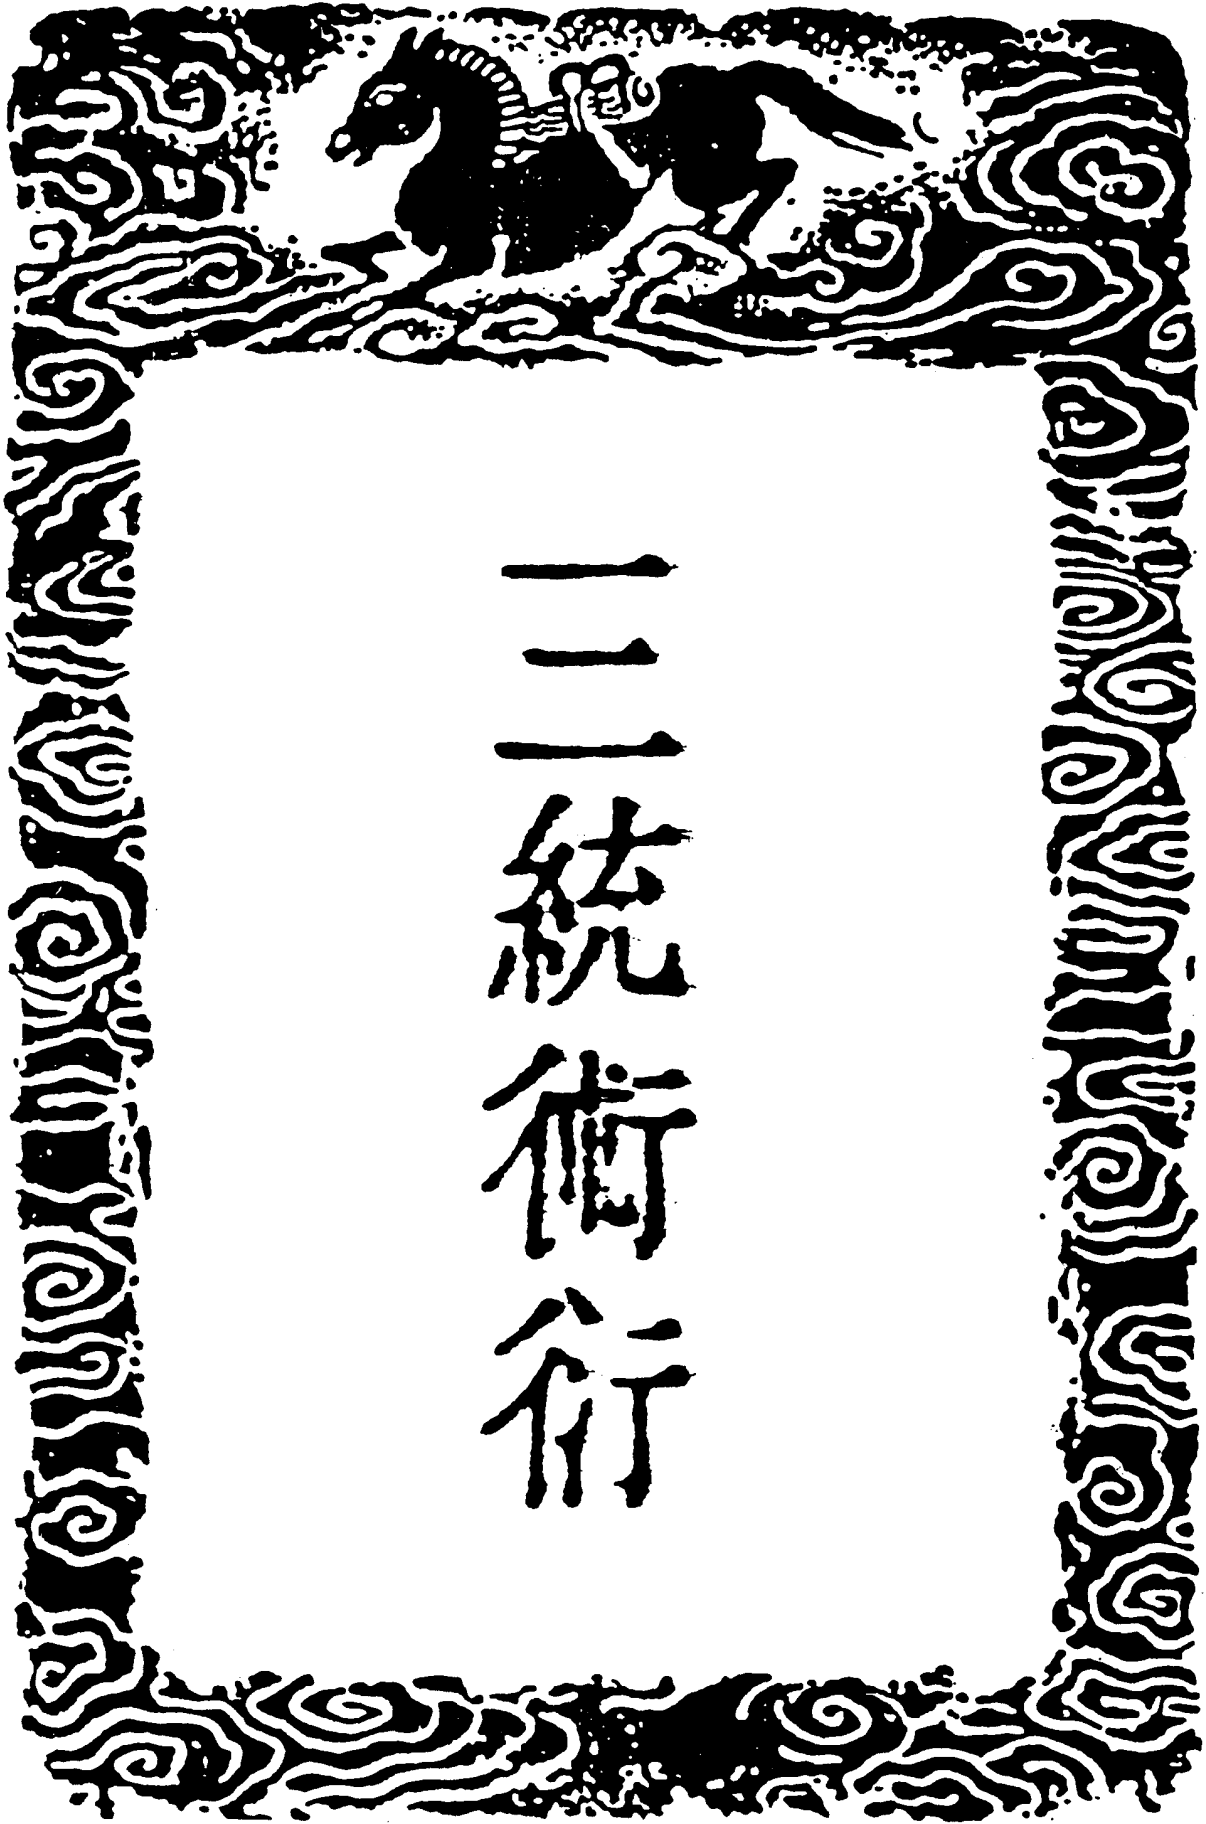 三統術衍